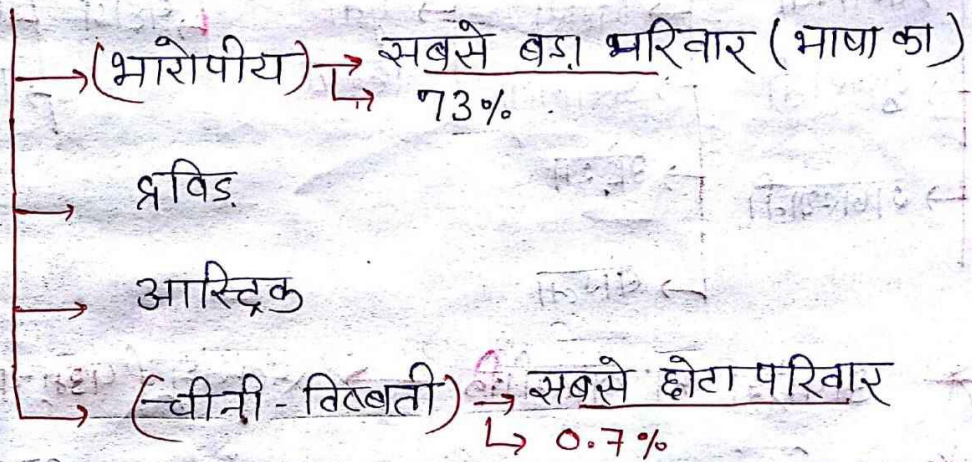 → (भारोपीय) → सबसे बड़ा परिवार (भाषा का)
↳ 73%
→ द्रविड़
→ आस्ट्रिक
→ (चीनी - तिब्बती) → सबसे छोटा परिवार
↳ 0.7%